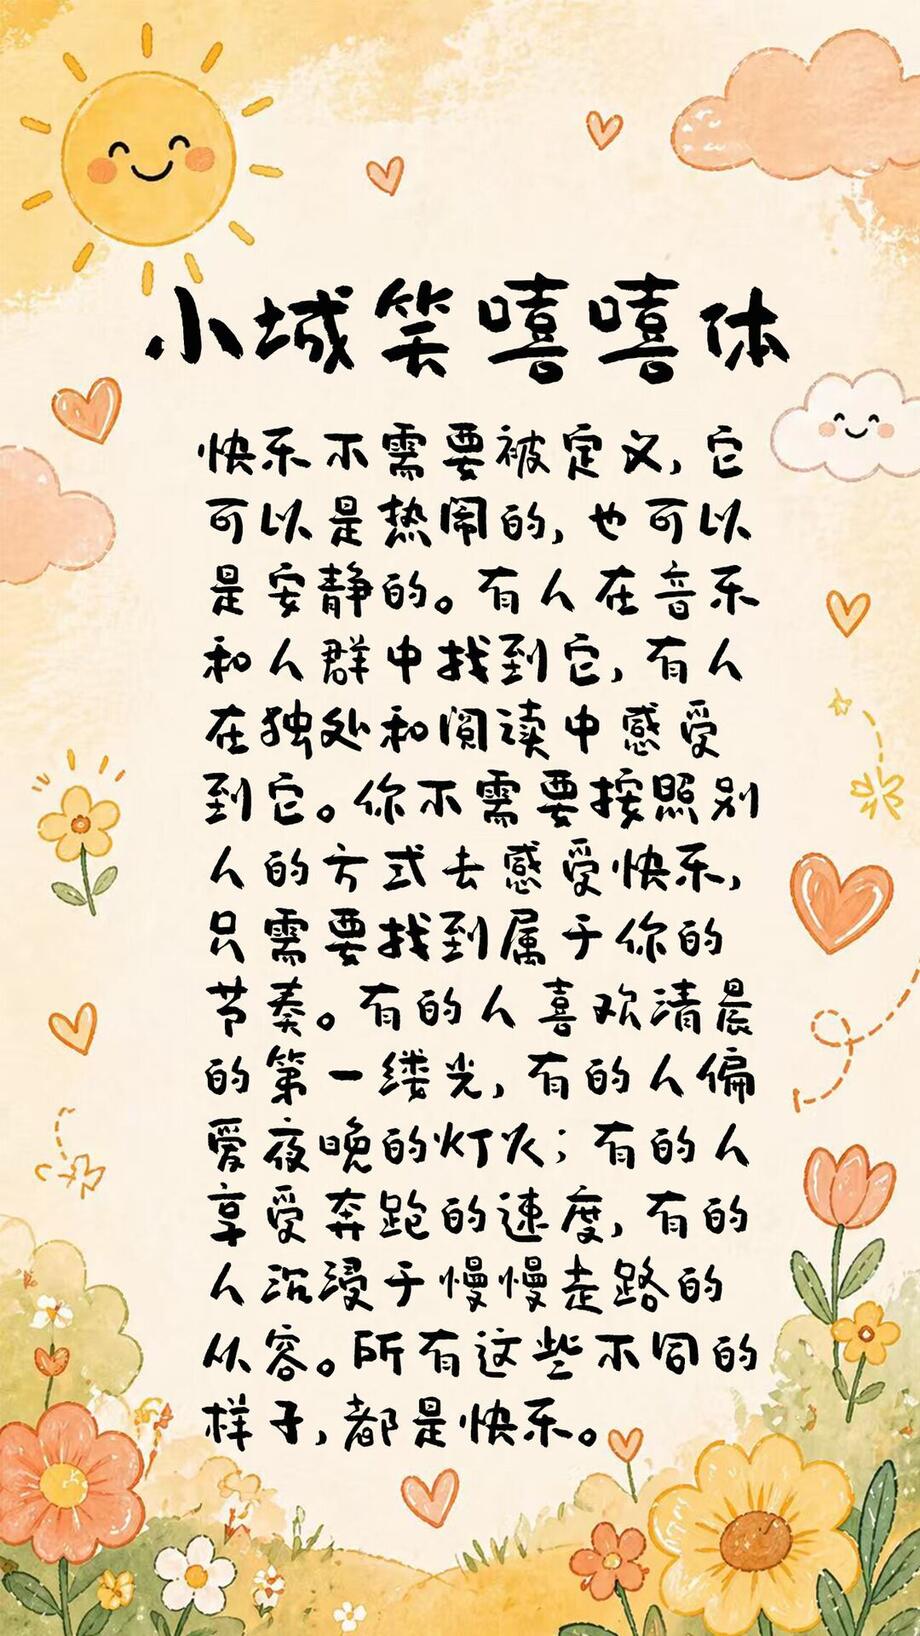 小城笑嘻嘻体
快乐不需要被定义,它
可以是热闹的,也可以
是安静的。有人在音乐
和人群中找到它,有人
在独处和阅读中感受
到它。你不需要按照别
人的方式去感受快乐,
只需要找到属于你的
节奏。有的人喜欢清晨
的第一缕光,有的人偏
爱夜晚的灯火;有的人
享受奔跑的速度,有的
人沉浸于慢慢走路的
从容。所有这些不同的
样子,都是快乐。